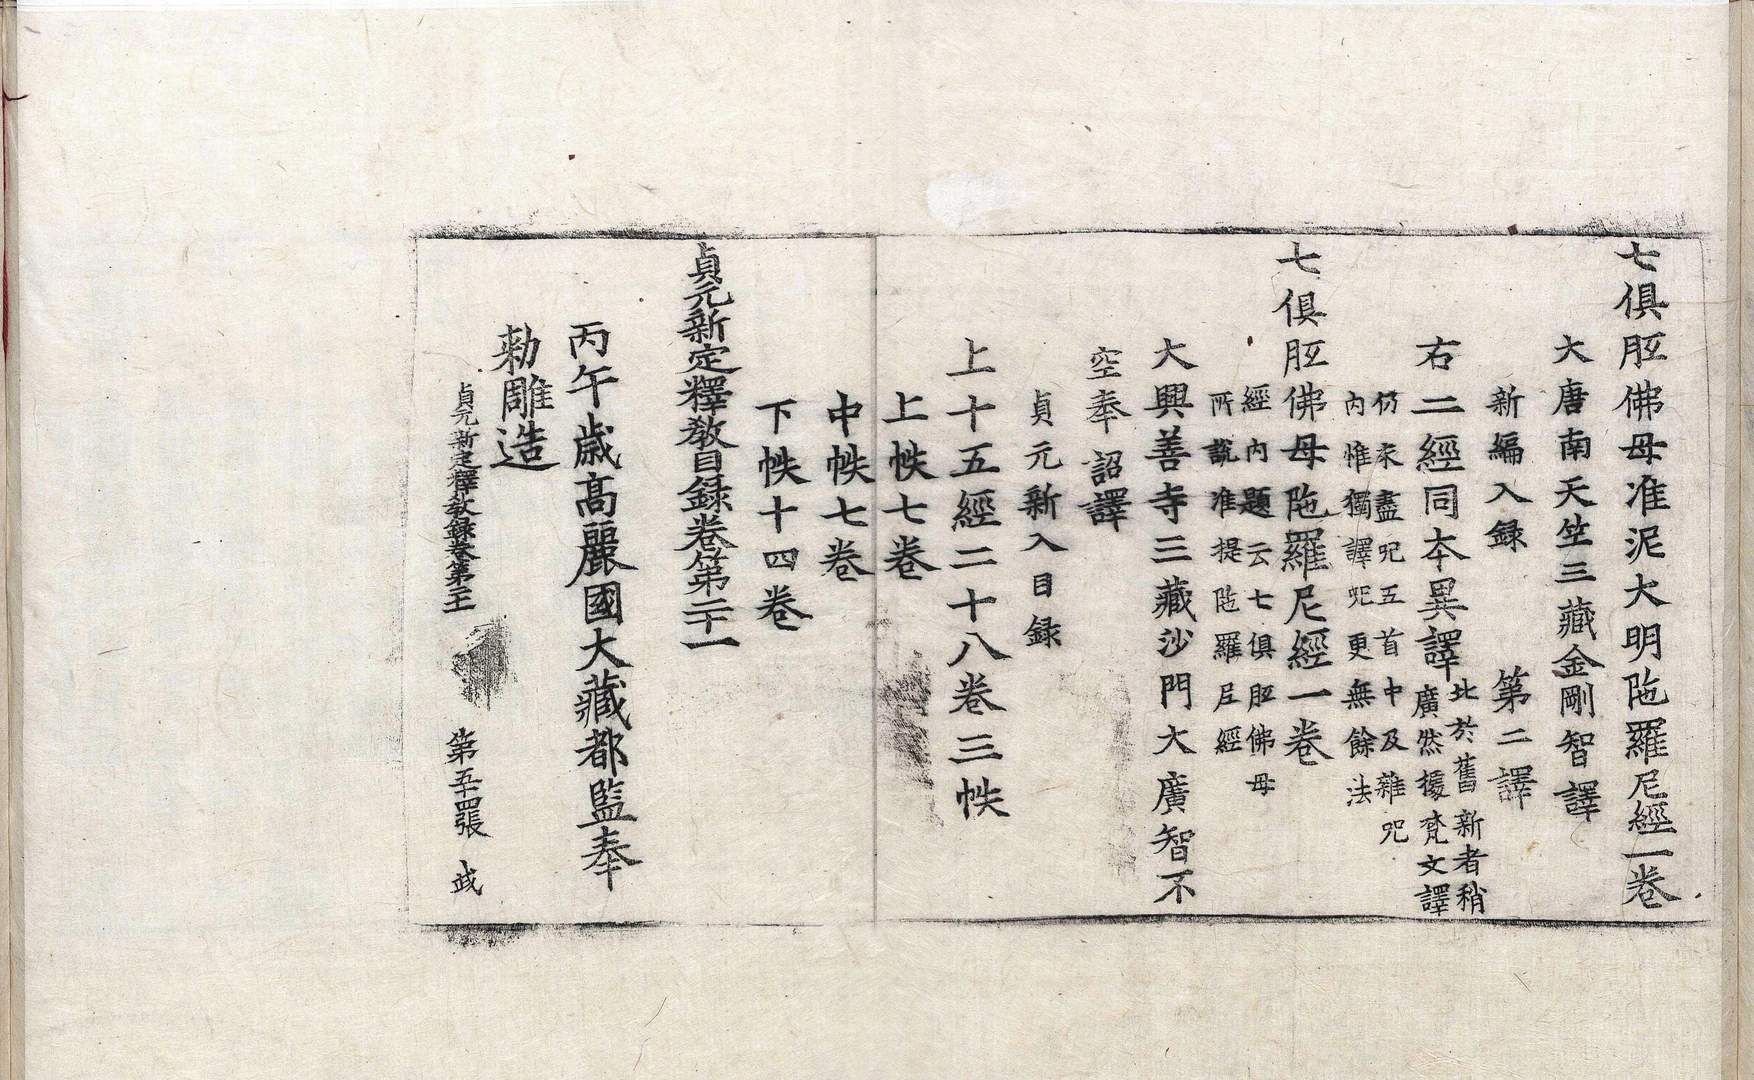 七俱胝佛母准泥大明陁羅尼經一卷
大唐南天竺三藏金剛智譯
新編入録　第二譯
右二經同本異譯
北於舊新者稍
廣然據梵文譯
仍未盡呪五首中及雜呪
内惟獨譯呪更無餘法
七俱胝佛母陁羅尼經一卷
經内題云七俱胝佛母
所說准提陁羅尼經
大興善寺三藏沙門大廣智不
空奉詔譯
貞元新入目録
上十五經二十八卷三帙
上帙七卷
中帙七卷
下帙十四卷
貞元新定釋教目録卷第二十一
丙午歳髙麗國大藏都監奉
勑雕造
貞元新定釋教録卷第二十一　第五十四張　武